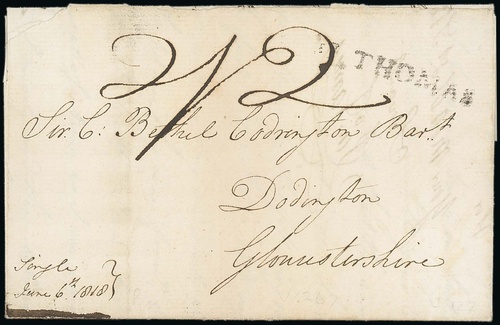 2/2
St THOMAS
Sir. C: Bethel Codrington Bart.
Dodington
Gloucestershire
Single
June 6th 1808